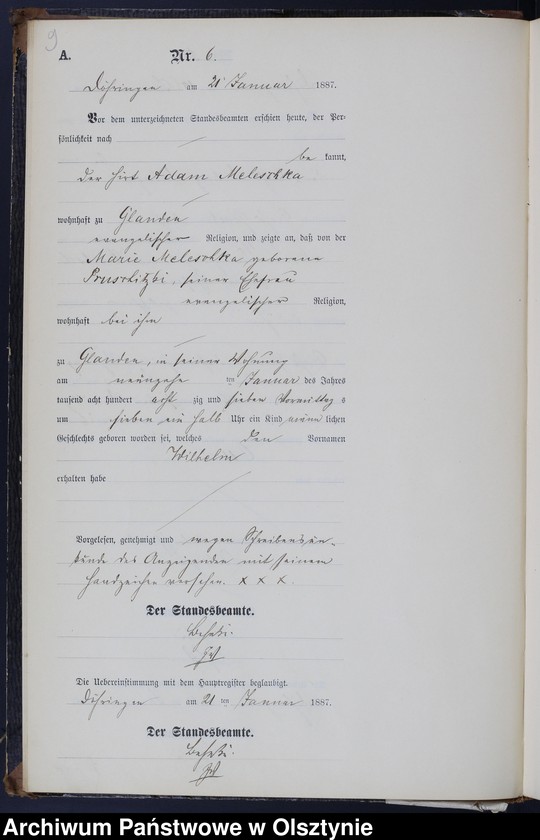 9
A.
Nr. 6.
Döhringen am 21 Januar 1887.
Vor dem unterzeichneten Standesbeamten erschien heute, der Per-
sönlichkeit nach
be kannt,
der Hirt Adam Meleschka
wohnhaft zu Glanden
evangelischer Religion, und zeigte an, daß von der
Marie Meleschka geborene
seiner Ehefrau
evangelischer Religion,
wohnhaft bei ihm
zu Glanden, in seiner Wohnung
am neunzehn ten Januar des Jahres
tausend acht hundert acht zig und sieben Vormittag s
um sieben ein halb Uhr ein Kind männ lichen
Geschlechts geboren worden sei, welches den Vornamen
Wilhelm
erhalten habe
Vorgelesen, genehmigt und wegen Schreibensun-
kunde des Anzeigenden mit seinem
Handzeichen versehen. X X X.
Der Standesbeamte.
Die Uebereinstimmung mit dem Hauptregister beglaubigt.
Döhringen am 21 ten Januar 1887.
Der Standesbeamte.
Archiwum Państwowe w Olsztynie